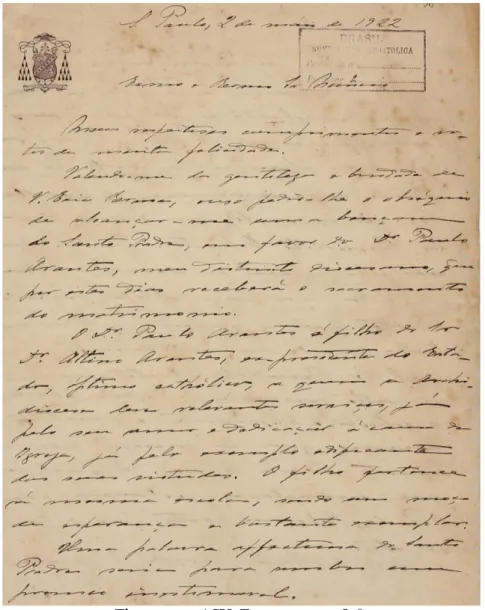 S. Paulo, 2 de maio de 1922
BRASIL
NUNZIATURA APOSTOLICA
Exmo e Revmo Sr Nuncio
respeitosos cumprimentos e vo-
tos de muita felicidade.
Valendo-me da gentileza e bondade de
V. Excia Revma, ouso pedir-lhe o obsequio
de alcançar-me uma bençam
do Santo Padre, em favor do Dr. Paulo
Arantes, meu distincto diocesano, que
por estes dias receberá o sacramento
do matrimonio.
O Dr. Paulo Arantes é filho do Sr
Dr. Altino Arantes, ex-presidente do Esta-
do, optimo catholico, a quem a Archi-
diocese deve relevantes serviços, já
pelo seu amor e dedicação á causa da
Igreja, já pelo exemplo edificante
das suas virtudes. O filho pertence
á mesma escola, sendo um moço
de esperanças e bastante exemplar.
Uma palavra affectuosa do Santo
Padre seria para ambos um
premio inestimavel.